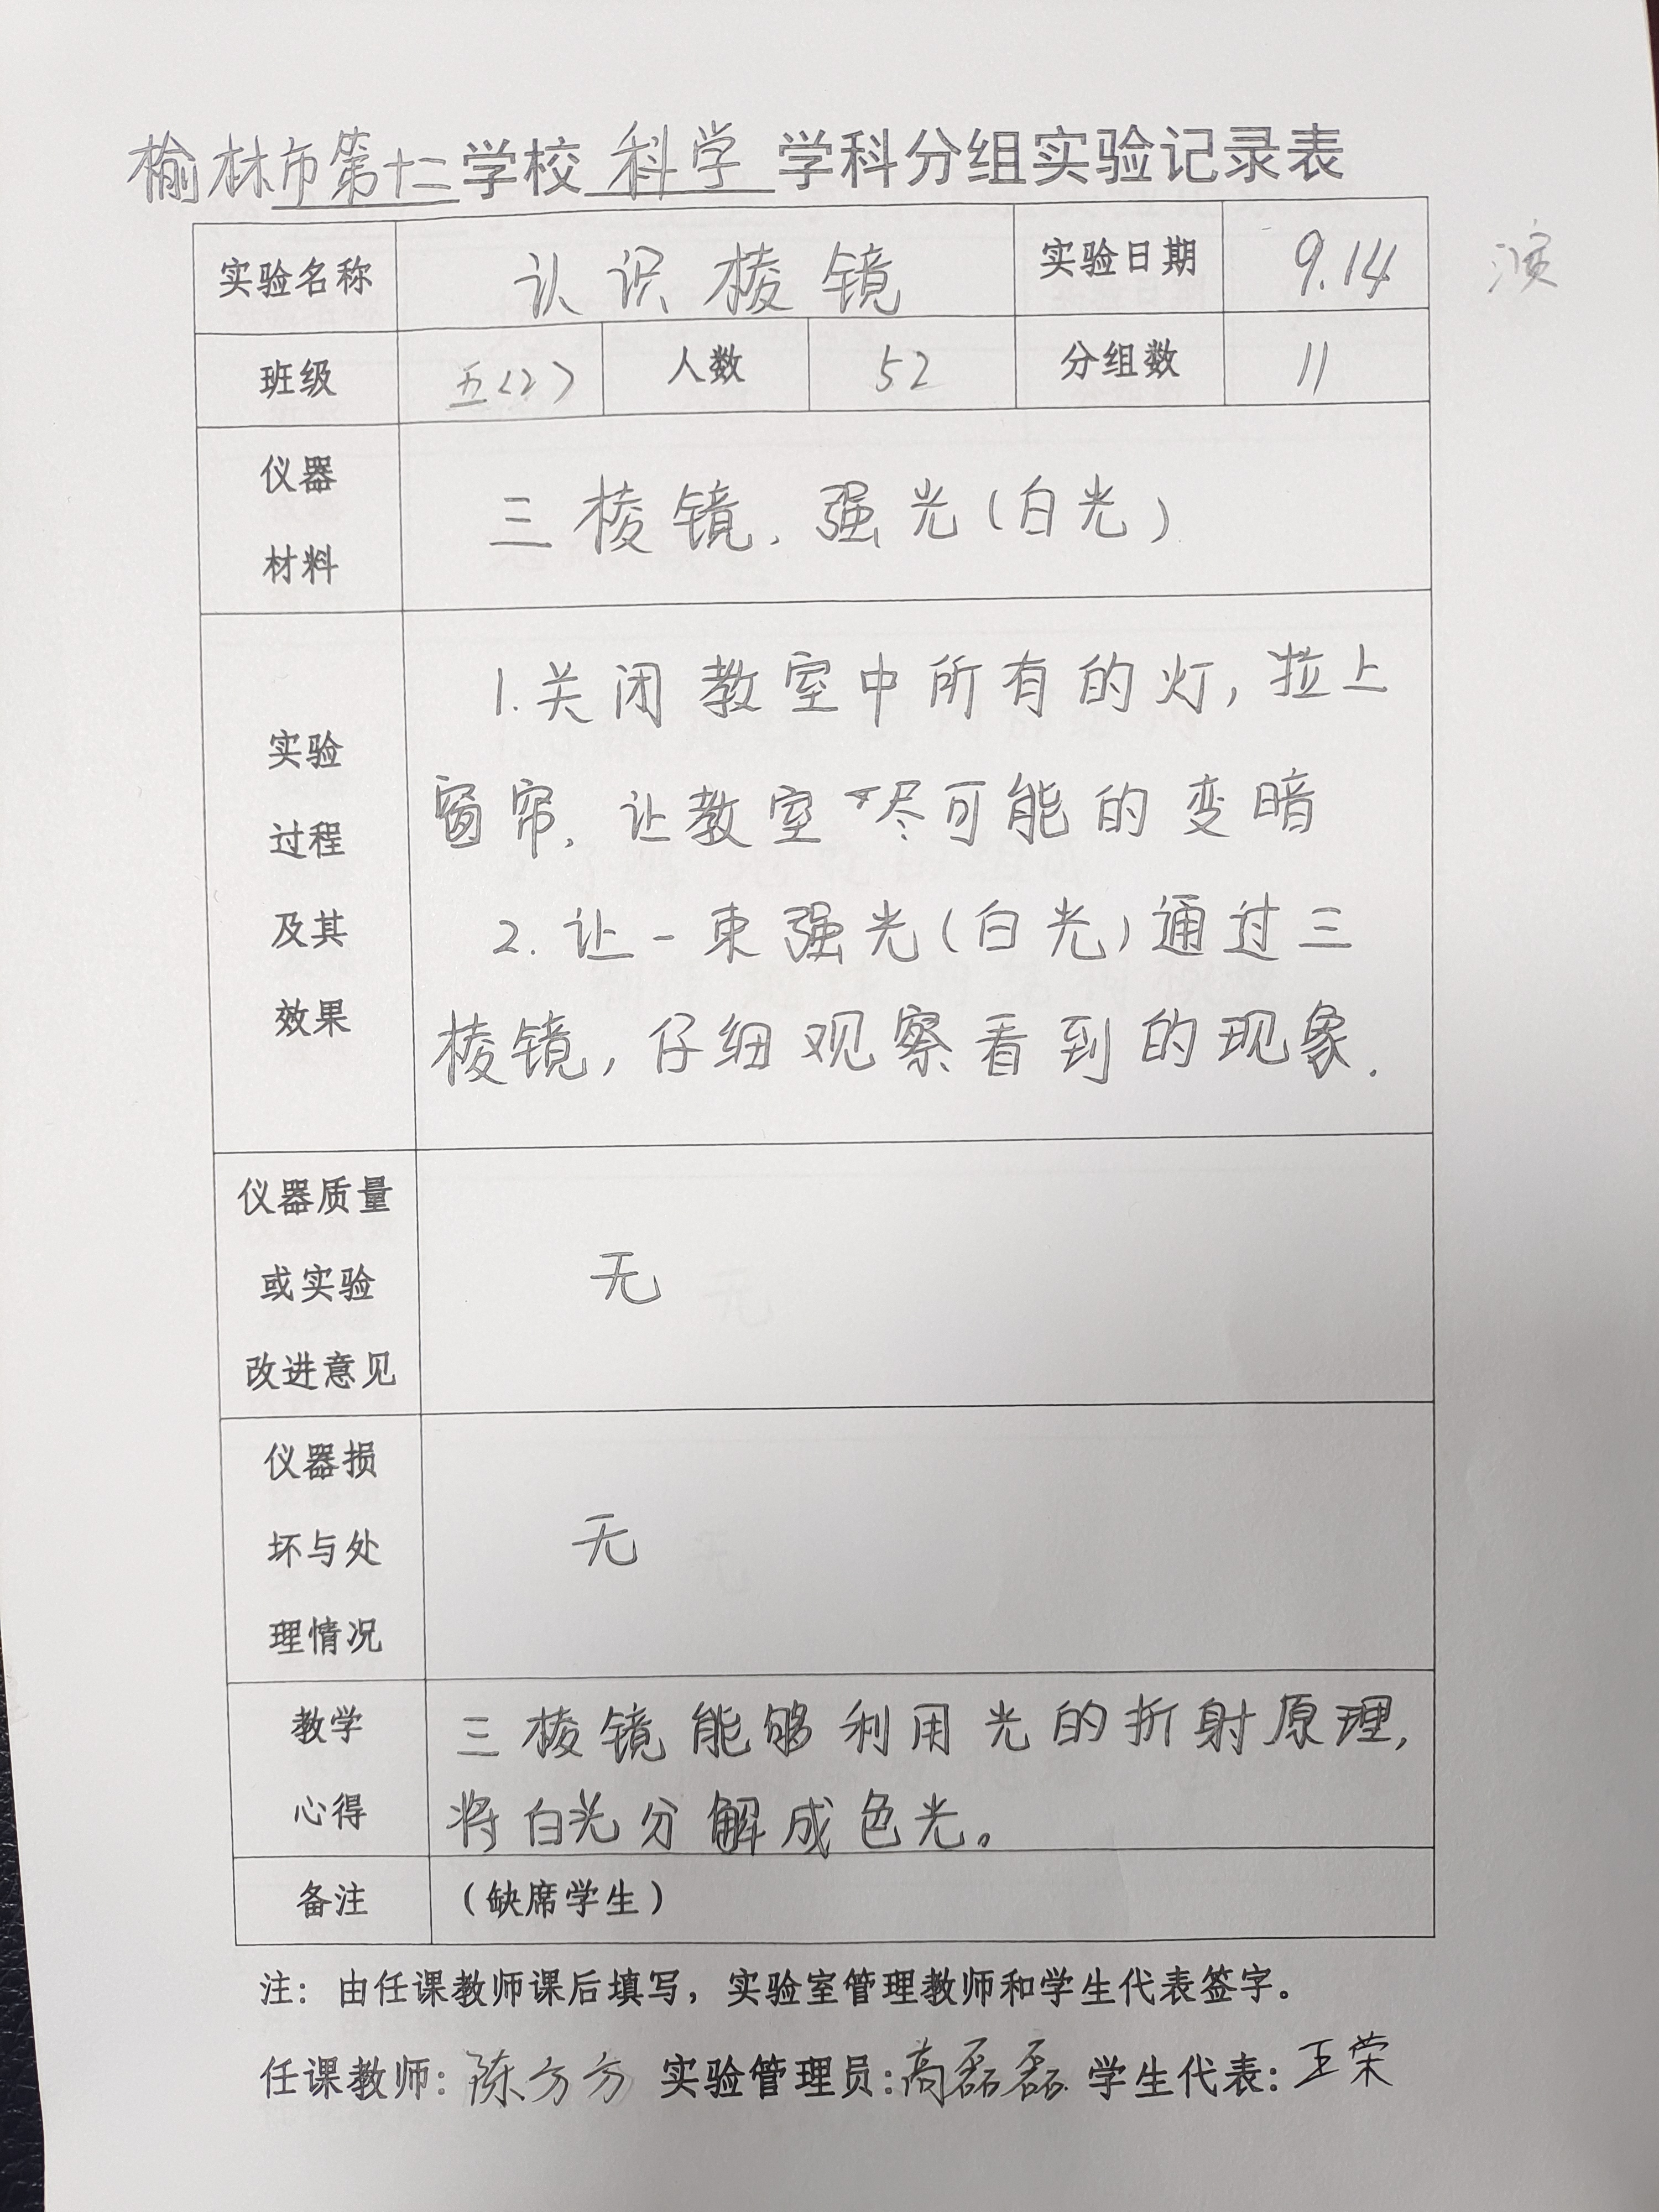 榆林市第十二学校 科学 学科分组实验记录表
实验名称 认识棱镜 实验日期 9.14 演
班级 五<2> 人数 52 分组数 11
仪器
材料
三棱镜、强光(白光)
实验
过程
及其
效果
1.关闭教室中所有的灯,拉上
窗帘,让教室尽可能的变暗
2.让一束强光(白光)通过三
棱镜,仔细观察看到的现象.
仪器质量
或实验
改进意见
无
仪器损
坏与处
理情况
无
教学
心得
三棱镜能够利用光的折射原理,
将白光分解成色光。
备注 (缺席学生)
注: 由任课教师课后填写,实验室管理教师和学生代表签字。
任课教师: 陈方方 实验管理员: 高磊磊 学生代表: 王荣